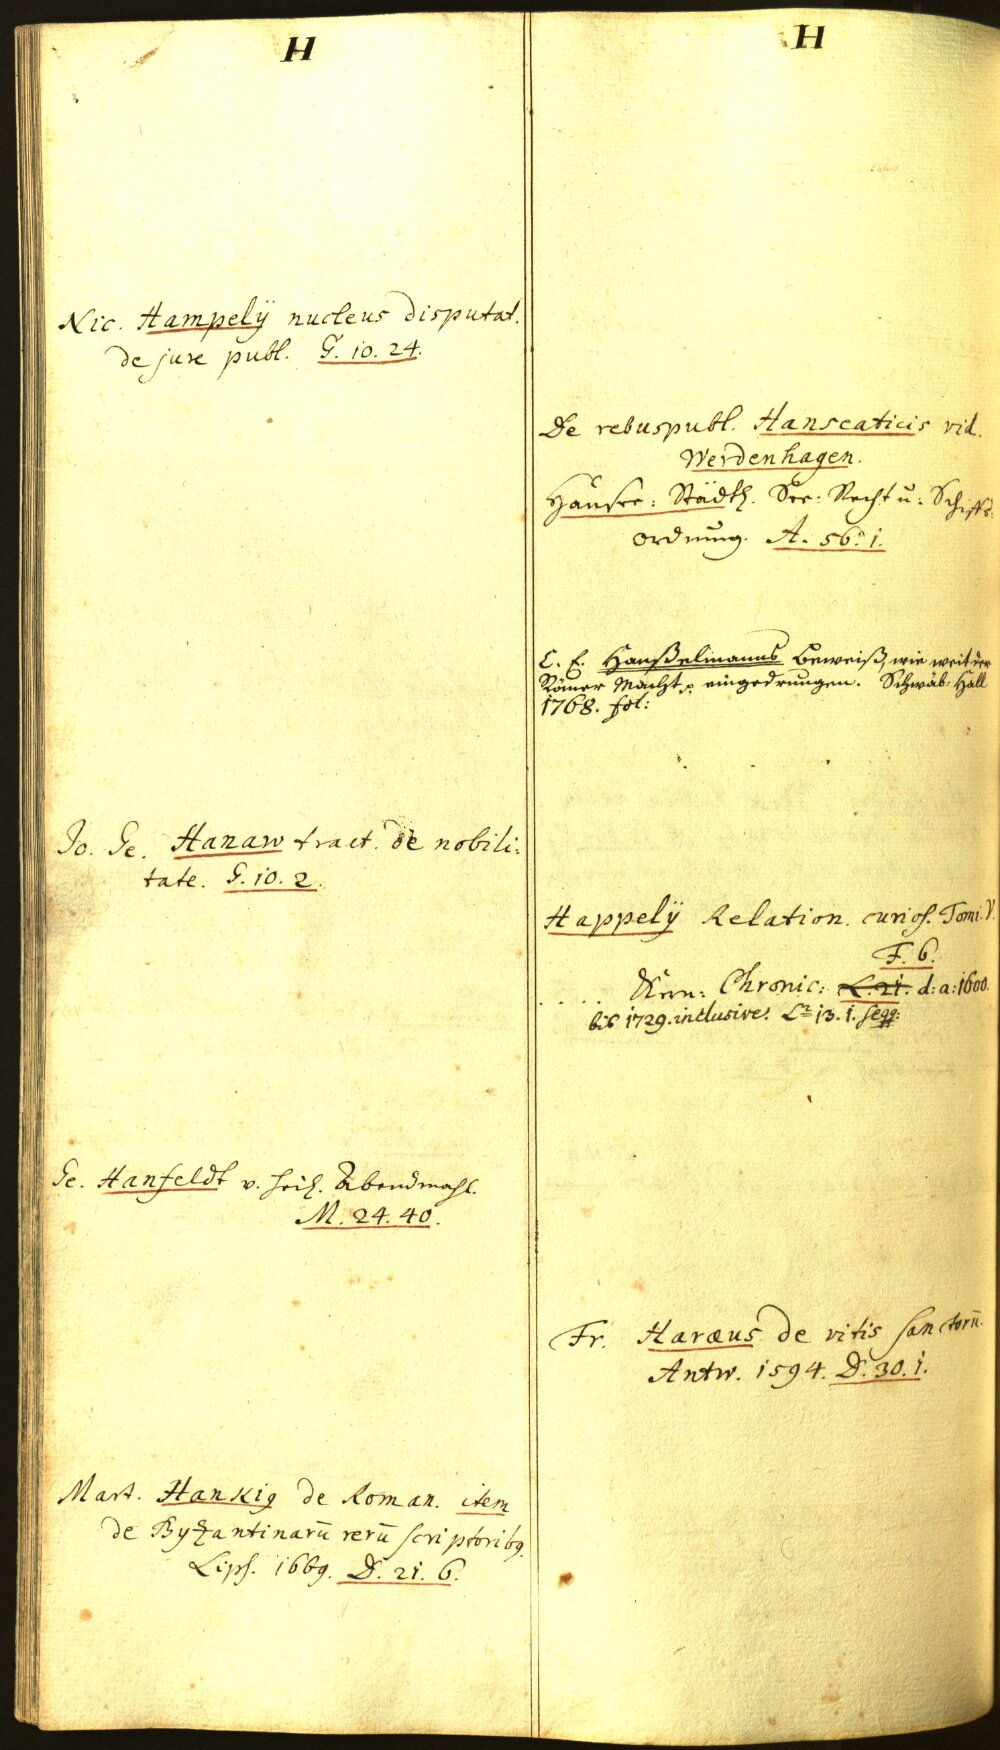 H
Nic. Hampelÿ nucleus disputat.
de jure publ. G. 10. 24.
Jo. Ge. Hanaw tract. de nobili-
tate. G. 10. 2.
Ge. Hanfeldt v. heil. Abendmahl.
M. 24. 40.
Mart. Hankiꝯ de Roman. item
de Byzantinarū rerū scriptoribꝯ.
Lips. 1669. D. 21. 6.
H
De rebuspubl. Hanseaticis vid.
Werdenhagen.
Hansee-Städt. See-Recht u. Schiffs-
ordnung. A. 56. 1.
C. E. Hanßelmanns Beweiß, wie weit der
Römer Macht eingedrungen. Schwäb: Hall
1768. fol:
Happelÿ Relation. curios. Tomi. V.
F. 6.
. . . . Kern-Chronic: L. 21. d: a: 1600.
biß 1729. inclusive. 13. 1. seqq:
Fr. Haræus de vitis sanctorū.
Antw. 1594. D. 30. 1.